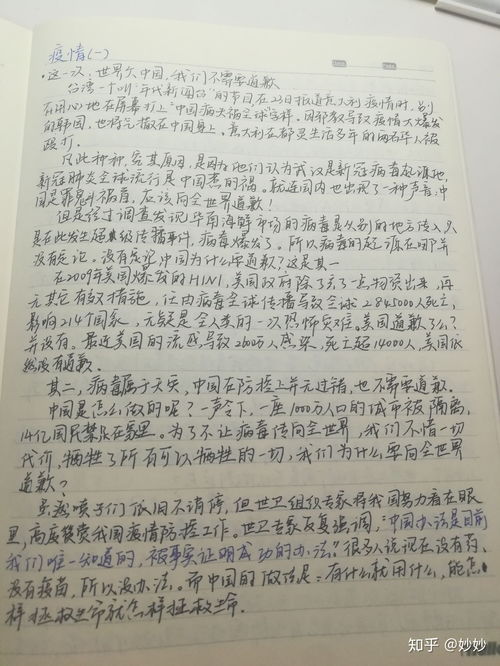 疫情(一)
·这一次，世界欠中国，我们不需要道歉
台湾一个叫“年代新闻台”的节目在23日报道意大利疫情时，别
有用心地在屏幕打上“中国病大祸全球”字样，因邪教导致疫情大爆发
的韩国，也将气撒在中国身上，意大利在都灵生活多年的两名华人被
殴打。
凡此种种，究其原因，是因为他们认为武汉是新冠病毒起源地，
新冠肺炎全球流行是中国惹的祸。就连国内也出现了一种声音：中
国是罪魁祸首，应该向全世界道歉！
但是经过调查发现，华南海鲜市场的病毒是从别的地方传入，只
是在此发生超级传播事件，病毒爆发了。所以病毒的起源在哪并
没有定论。没有定论中国为什么要道歉？这是其一
在2009年美国爆发的H1N1，美国政府除了亮了一点物资出来，再
无其它有效措施，任由病毒全球传播导致全球284500人死亡，
影响214个国家，无疑是全人类的一次恐怖灾难。美国道歉了么？
并没有。最近美国的流感，导致2600万人感染，死亡超14000人，美国依
然没有道歉。
其二，病毒属于天灾，中国在防控上并无过错，也不需要道歉。
中国是怎么做的呢？一声令下，一座1000万人口的城市被隔离，
14亿国民禁足在家里。为了不让病毒传向全世界，我们不惜一切
代价，牺牲了所有可以牺牲的一切，我们为什么要向全世界
道歉？
虽然喷子们依旧不消停，但世卫组织专家将我国努力看在眼
里，高度赞赏我国疫情防控工作。世卫专家反复强调，“中国办法是目前
我们唯一知道的，被事实证明成功的办法。”很多人说现在没有药，
没有疫苗，所以没办法。而中国的做法是：有什么就用什么，能怎
样拯救生命就怎样拯救生命.
知乎 @妙妙